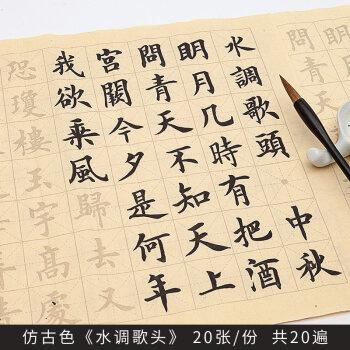 水調歌頭 中秋
明月几時有把酒
問青天不知天上
宮闕今夕是何年
我欲乘風歸去又
恐瓊樓玉宇高處
仿古色《水调歌头》 20张/份 共20遍